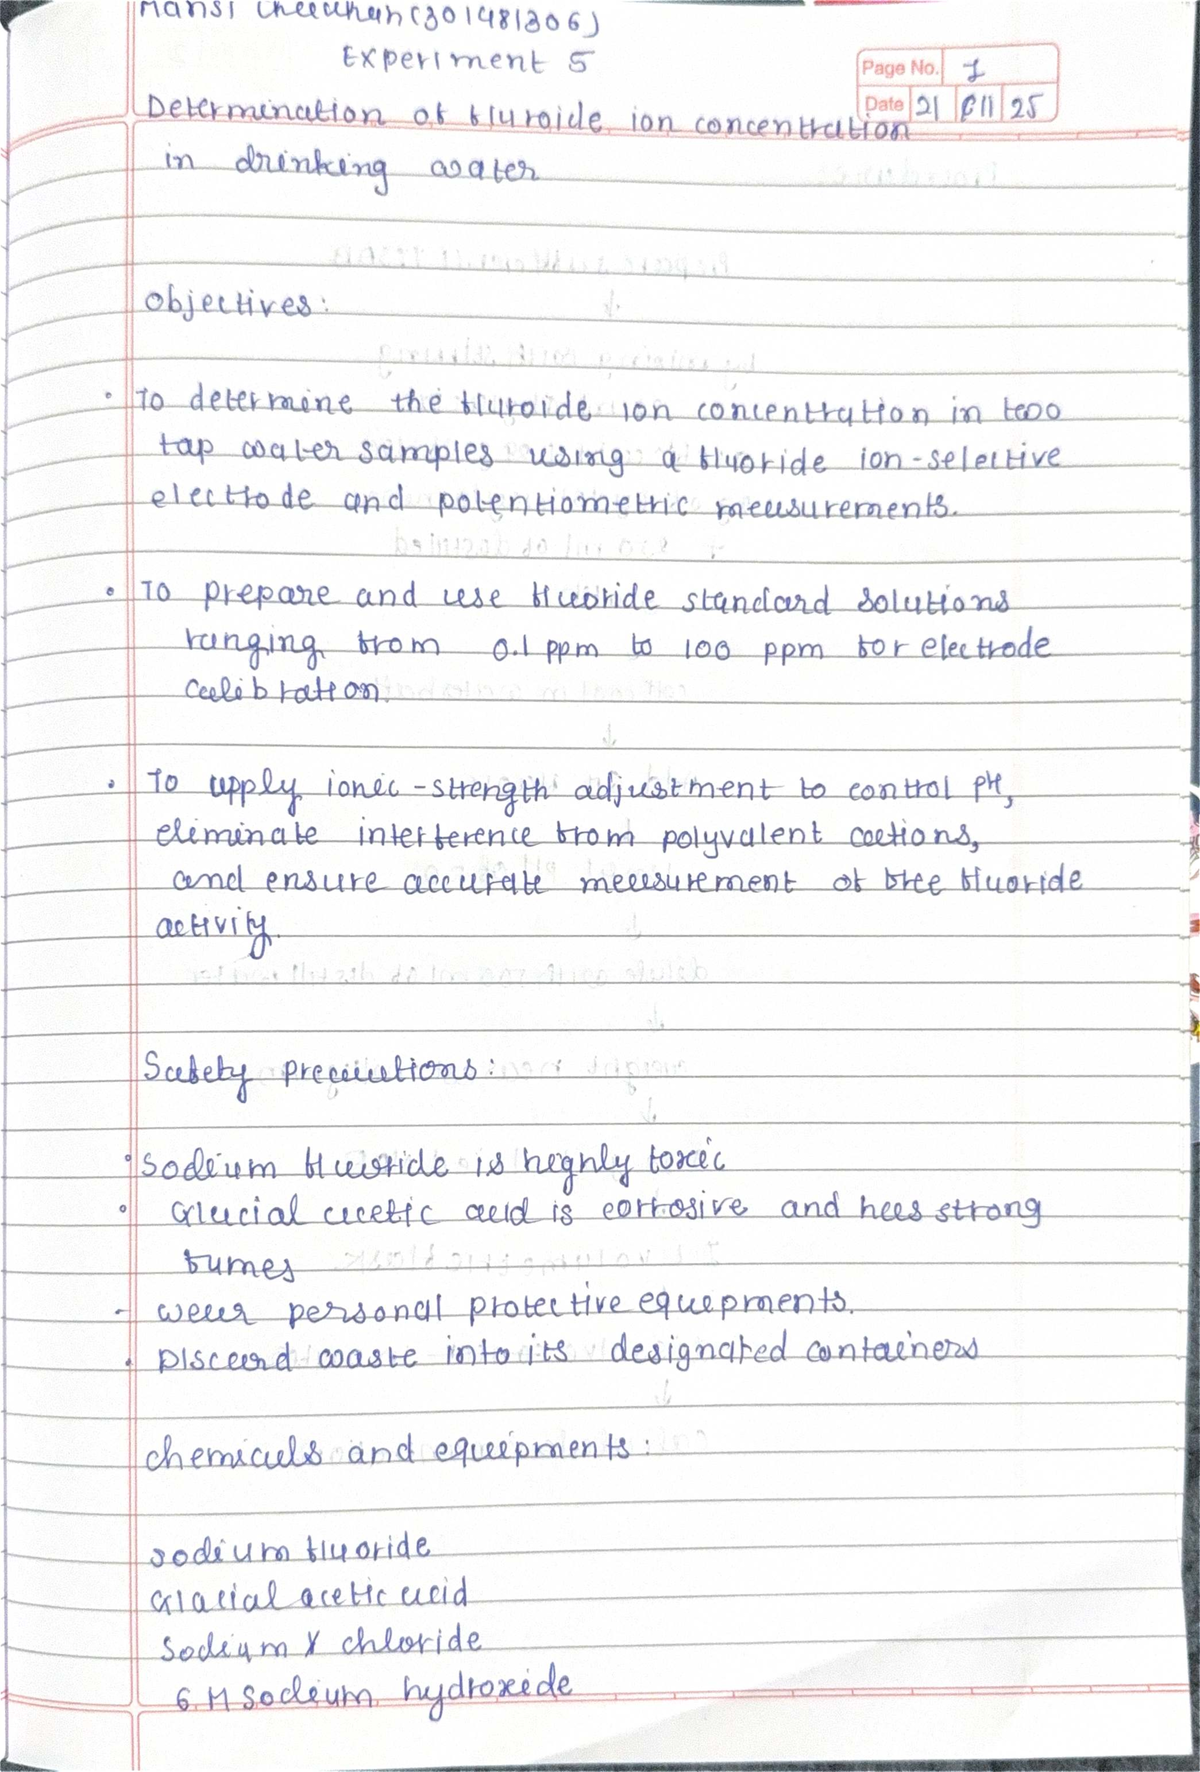 Mansi Chauhan (301481306)
Experiment 5
Page No. 1
Date 21 11 25
Determination of fluroide ion concentration
in drinking water
Objectives:
• To determine the fluroide ion concentration in two
tap water samples using a fluoride ion-selective
electrode and potentiometric measurements.
• To prepare and use fluoride standard solutions
ranging from 0.1 ppm to 100 ppm for electrode
calibration.
• To apply ionic-strength adjustment to control pH,
eliminate interference from polyvalent cations,
and ensure accurate measurement of free fluoride
activity.
Safety precautions:
• Sodium fluoride is highly toxic
• Glacial acetic acid is corrosive and has strong
fumes
- wear personal protective equipments.
• Discard waste into its designated containers
chemicals and equipments:
sodium fluoride
Glacial acetic acid
Sodium chloride
6 M Sodium hydroxide